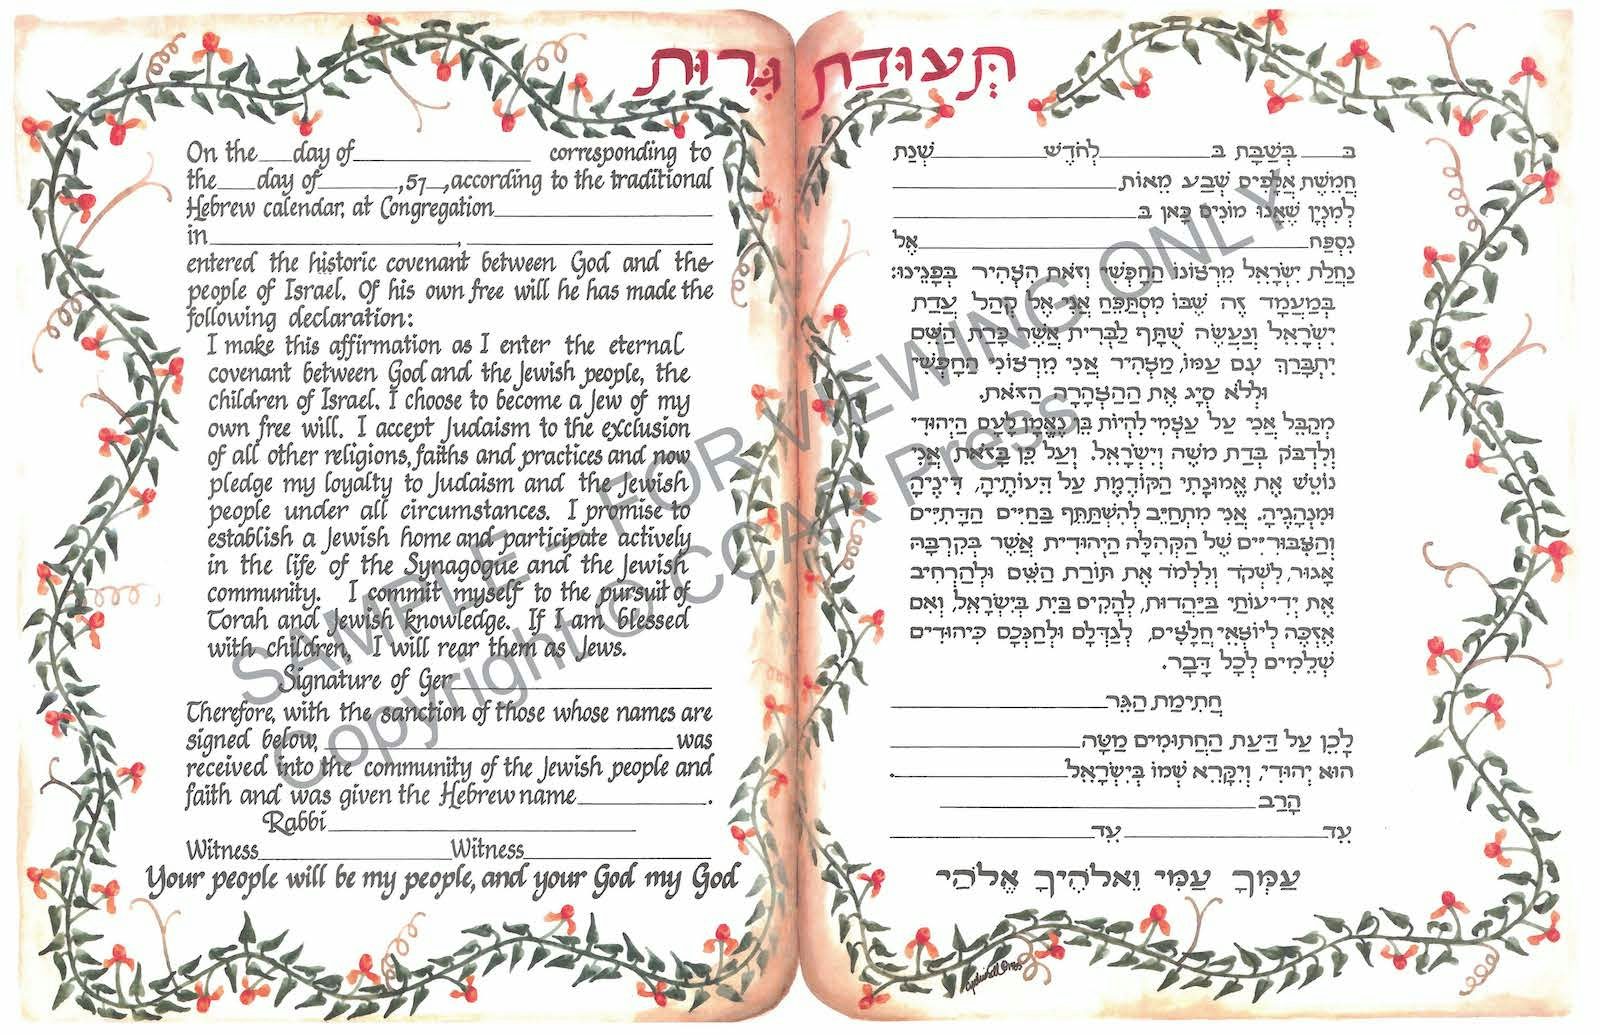 תְּעוּדַת גֵּרוּת
On the___day of____________ corresponding to
the___day of_______,57__,according to the traditional
Hebrew calendar, at Congregation____________
in____________, ____________
entered the historic covenant between God and the
people of Israel. Of his own free will he has made the
following declaration:
I make this affirmation as I enter the eternal
covenant between God and the Jewish people, the
children of Israel. I choose to become a Jew of my
own free will. I accept Judaism to the exclusion
of all other religions, faiths and practices and now
pledge my loyalty to Judaism and the Jewish
people under all circumstances. I promise to
establish a Jewish home and participate actively
in the life of the Synagogue and the Jewish
community. I commit myself to the pursuit of
Torah and Jewish knowledge. If I am blessed
with children, I will rear them as Jews.
Signature of Ger____________
Therefore, with the sanction of those whose names are
signed below,____________was
received into the community of the Jewish people and
faith and was given the Hebrew name____________.
Rabbi____________
Witness____________Witness____________
Your people will be my people, and your God my God
בּ___ בְּשַׁבָּת בּ____________לְחֹדֶשׁ____________שְׁנַת
חֲמֵשֶׁת אֲלָפִים שְׁבַע מֵאוֹת____________
לְמִנְיָן שֶׁאָנוּ מוֹנִים כָּאן בּ____________
נִסְפַּח____________אֶל
נַחֲלַת יִשְׂרָאֵל מֵרְצוֹנוֹ הַחָפְשִׁי וְזֹאת הִצְהִיר בְּפָנֵינוּ:
בְּמַעֲמָד זֶה שֶׁבּוֹ מִסְתַּפֵּחַ אֲנִי אֶל קְהַל עֲדַת
יִשְׂרָאֵל וְנַעֲשֶׂה שֻׁתָּף לַבְּרִית אֲשֶׁר כָּרַת הַשֵּׁם
יִתְבָּרַךְ עִם עַמּוֹ, מַצְהִיר אֲנִי מֵרְצוֹנִי הַחָפְשִׁי
וּלְלֹא סְיָג אֶת הַהַצְהָרָה הַזֹּאת.
מְקַבֵּל אֲנִי עַל עַצְמִי לִהְיוֹת בֵּן נֶאֱמָן לָעָם הַיְּהוּדִי
וְלִדְבֹּק בְּדַת מֹשֶׁה וְיִשְׂרָאֵל. וְעַל כֵּן בָּזֹאת אֲנִי
נוֹטֵשׁ אֶת אֱמוּנָתִי הַקּוֹדֶמֶת עַל דֵּעוֹתֶיהָ, דִּינֶיהָ
וּמִנְהָגֶיהָ. אֲנִי מִתְחַיֵּב לְהִשְׁתַּתֵּף בַּחַיִּים הַדָּתִיִּים
וְהַצִּבּוּרִיִּים שֶׁל הַקְּהִלָּה הַיְּהוּדִית אֲשֶׁר בְּקִרְבָּהּ
אָגוּר, לִשְׁקֹד וְלִלְמֹד אֶת תּוֹרַת הַשֵּׁם וּלְהַרְחִיב
אֶת יְדִיעוֹתַי בַּיַּהֲדוּת, לְהָקִים בַּיִת בְּיִשְׂרָאֵל, וְאִם
אֶזְכֶּה לְיוֹצְאֵי חֲלָצַיִם, לְגַדְּלָם וּלְחַנְּכָם כִּיהוּדִים
שְׁלֵמִים לְכָל דָּבָר.
חֲתִימַת הַגֵּר____________
לָכֵן עַל דַּעַת הַחֲתוּמִים מַטָּה____________
הוּא יְהוּדִי, וְיִקָּרֵא שְׁמוֹ בְּיִשְׂרָאֵל____________.
הָרַב____________
עֵד____________עֵד____________
עַמֵּךְ עַמִּי וֵאלֹהַיִךְ אֱלֹהָי
SAMPLE – FOR VIEWING ONLY
Copyright © CCAR Press